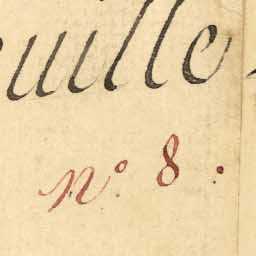 euille
n.° 8.